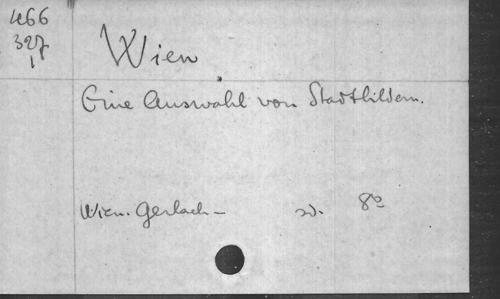 466
327
1
Wien
Eine Auswahl von Stadtbildern.
Wien. Gerlach - sd. 8°